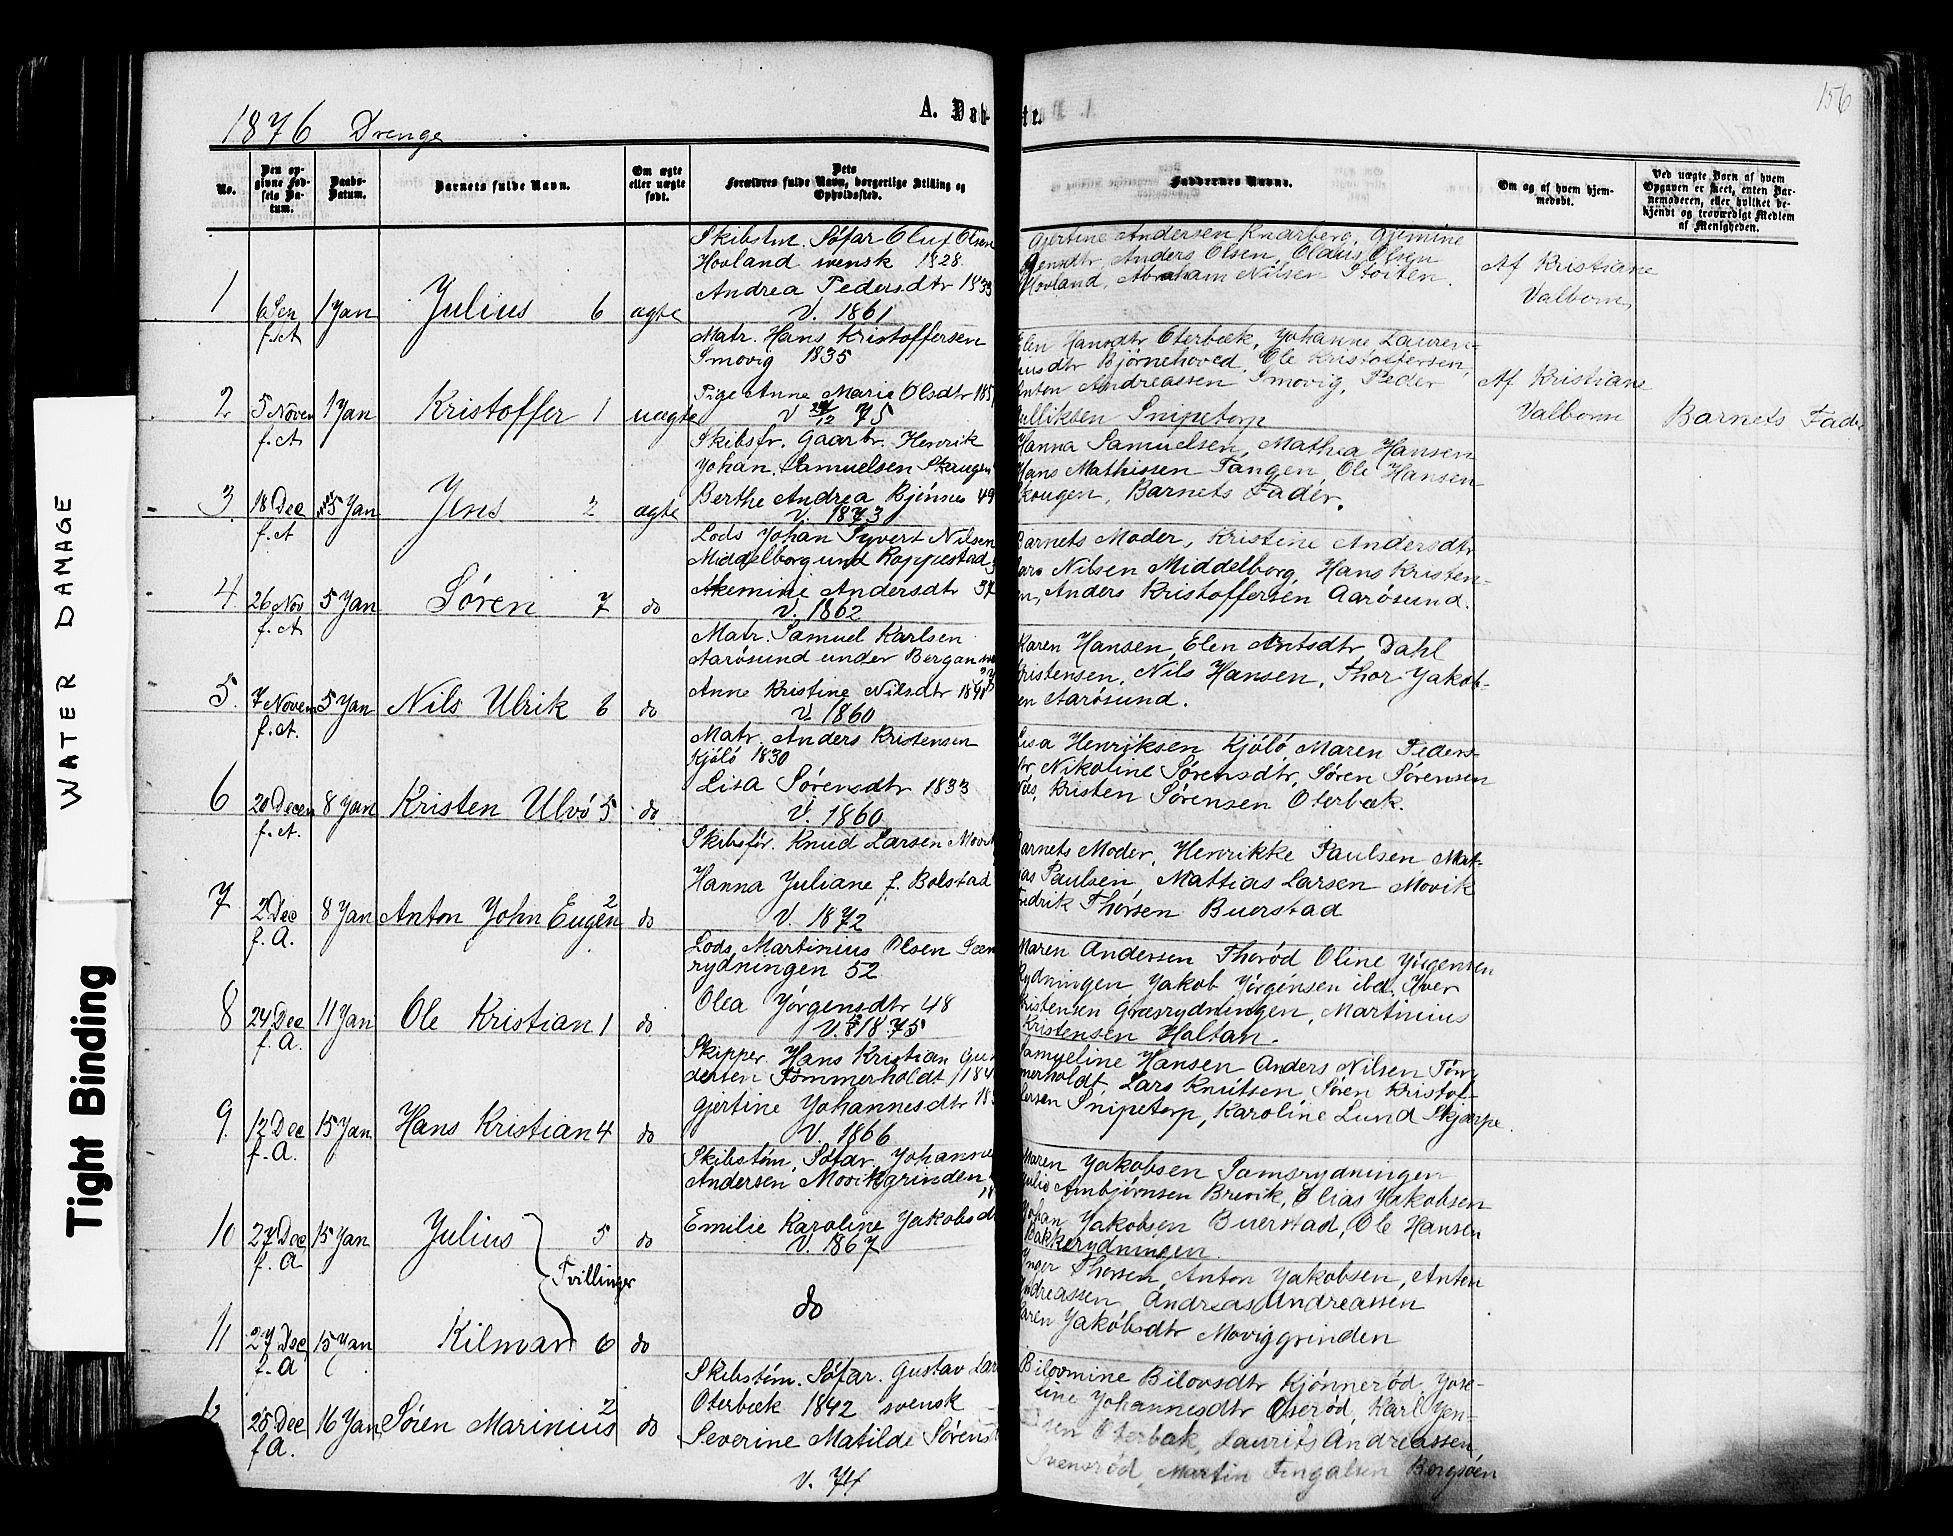 156
1876 Drenge
A. Døbte.
No.
Den opgivne Fødsels Datum.
Daabs-Datum.
Barnets fulde Navn.
Om ægte eller uægte født.
Dets Forældres fulde Navn, borgerlige Stilling og Opholdssted.
Faddernes Navne.
Om og af hvem hjemmedøbt.
Ved uægte Barn af hvem Opgaven er skeet, enten Barnemoderen, eller hvilket bekjendt og troværdigt Medlem af Menigheden.
WATER DAMAGE
Tight Binding
1
f. A
1 Jan
Julius 6
ægte
Skibstm. Søfar Oluf Olsen
Hovland svensk 1828
Andrea Pedersdtr 1833
V. 1861
Gjertine Andersen Knarberg, Gjemine
Jensdtr Anders Olsen, Olaus Olsen
Hovland, Abraham Nilsen Stoiten.
Af Kristiane
Valborm
2
5 Novem
f. A
1 Jan
Kristoffer 1
uægte
Matr. Hans Kristoffersen
Smovig 1835
Pige Anne Marie Olsdtr 185
V 12 75
Elen Hansdtr Oterbæk, Johanne Lauren-
Bjørnehoved, Ole Kristoffersen,
Anton Andreassen Smovig, Peder
Gulliksen Snipetorp
Af Kristiane
Valborm
Barnets Fader
3.
18 Dec
f. A
5 Jan
Jens 2
ægte
Skibsfr. Gaarbr. Henrik
Johan. Samuelsen Skaugen
Berthe Andrea Bjønnes 49
V. 1873
Hanna Samuelsen, Mathea Hansen
Hans Mathissen Tangen, Ole Hansen
Skougen, Barnets Fader.
4
26 Nov
f. A
5 Jan
Søren 7
do
Lods Johan Syvert Nilsen
Middelborg und Roppestad
Akemine Andersdtr 37
V. 1862
Barnets Moder, Kristine Andersdtr
Lars Nilsen Middelborg, Hans Kristen-
sen, Anders Kristoffersen Aarøsund.
5.
7 Novem
f. A.
5 Jan
Nils Ulrik 6
do
Matr. Samuel Karlsen
Aarøsund under Bergan
Anne Kristine Nilsdtr 1841
V. 1860
Karen Hansen, Elen Antsdtr, Dahl
Kristensen, Nils Hansen, Thor Jakob-
sen Aarøsund.
6
20 Decem
f. A.
8 Jan
Kristen Ulvø 5
do
Matr. Anders Kristensen
Kjølø 1830
Lisa Sørensdtr 1833
V. 1860
Lisa Henriksen Kjølø, Maren Peders-
dtr Nikoline Sørensdtr, Søren Sørensen
Kristen Sørensen Oterbæk.
7
2 Dec
f. A.
8 Jan
Anton John Eugen 2
do
Skibsfør. Knud Larsen Movik
Hanna Juliane f. Bolstad
V. 1872
Barnets Moder, Henrikke Paulsen Mat-
ias Paulsen, Mattias Larsen Movik
Fredrik Thorsen Buerstad
8
24 Dec
f. A.
11 Jan
Ole Kristian 1
do
Lods Martinius Olsen Sæm
rydningen 52
Olea Jørgensdtr 48
V. 1875
Maren Andersen Thorød Oline Jørgensen
Rydningen Jakob Jørgensen ibd. Iver
Kristensen Græsrydningen, Martinius
Kristensen Holtan.
9.
12 Dec
f. A.
15 Jan
Hans Kristian 4
do
Skipper. Hans Kristian Gun
dersen Tømmerholdt 184
Gjertine Johannesdtr 18
V. 1866
Samueline Hansen Anders Nilsen Tøm-
merholdt Lars Knutsen, Søren Kristof-
fersen Snipetorp, Karoline Lund Skjærpe.
10
27 Dec
f. A
15 Jan
Julius 5
do
Tvillinger
Skibstøm, Søfar. Johanne
Andersen Movikgrinden
Emilie Karoline Jakobsd
V. 1867
Maren Jakobsen Samsrydningen
Julie Ambjørnsen Brevik, Elias Jakobsen
Johan Jakobsen Buerstad, Ole Hansen
Bakkerydningen.
11
27 Dec
f. A
15 Jan
Kilmar 6
do
do
Inger Thorsen, Anton Jakobsen, Anton
Andreassen, Andreas Andreassen
Karen Jakobsdtr Moviggrinden
12
25 Dec
f A.
16 Jan
Søren Marinius 2
do
Skibstøm. Søfar. Gustav Lar
Oterbæk 1842 svensk
Severine Matilde Sørensd
V. 74
Bilovmine Bilovsdtr Kjønnerød, Jose-
fine Johannesdtr Oserød, Karl Jen-
sen Oterbæk, Laurits Andreassen,
Svensrød, Martin Fingalsen Bergsøen